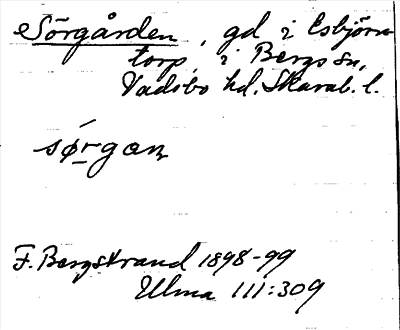 Sörgården, gd i Esbjörn
torp, i Bergs sn,
Vadsbo hd, Skarab. l.
sǿrgan
F. Bergstrand 1898-99
Ulma 111:309